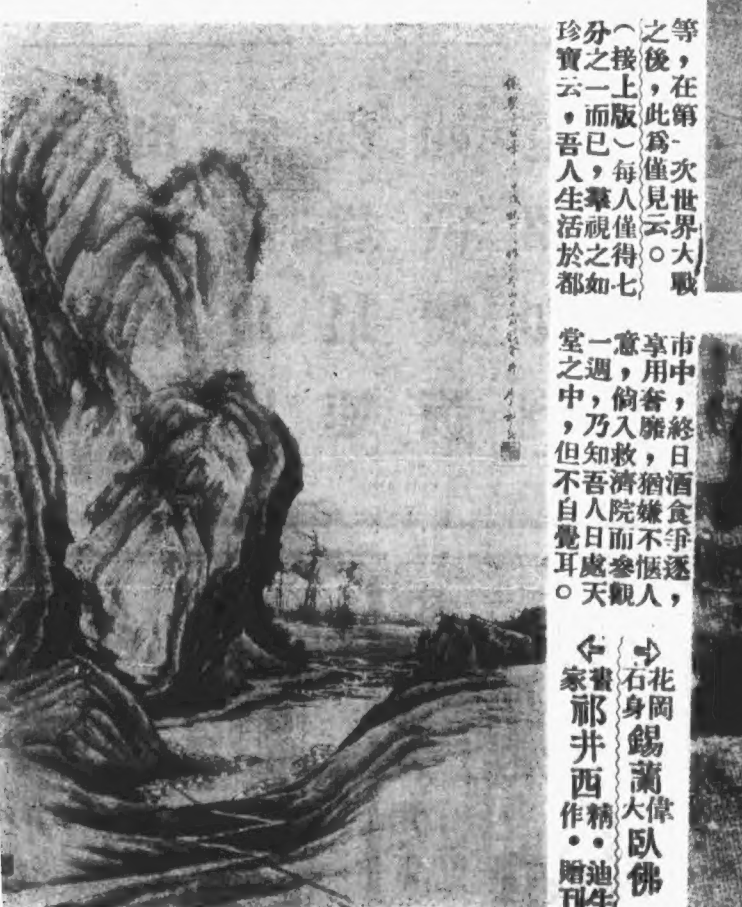 等，在第一次世界大戰
之後，此爲僅見云。
（接上版）每人僅得七
分之一而已，羣視之如
珍寶云，吾人生活於都
市中，終日酒食爭逐，
享用奢靡，猶嫌不愜人
意，倘入救濟院而參觀
一週，乃知吾人日處天
堂之中，但不自覺耳。
花岡石身錫蘭偉大臥佛
畫家祁井西精作・迪生贈刊